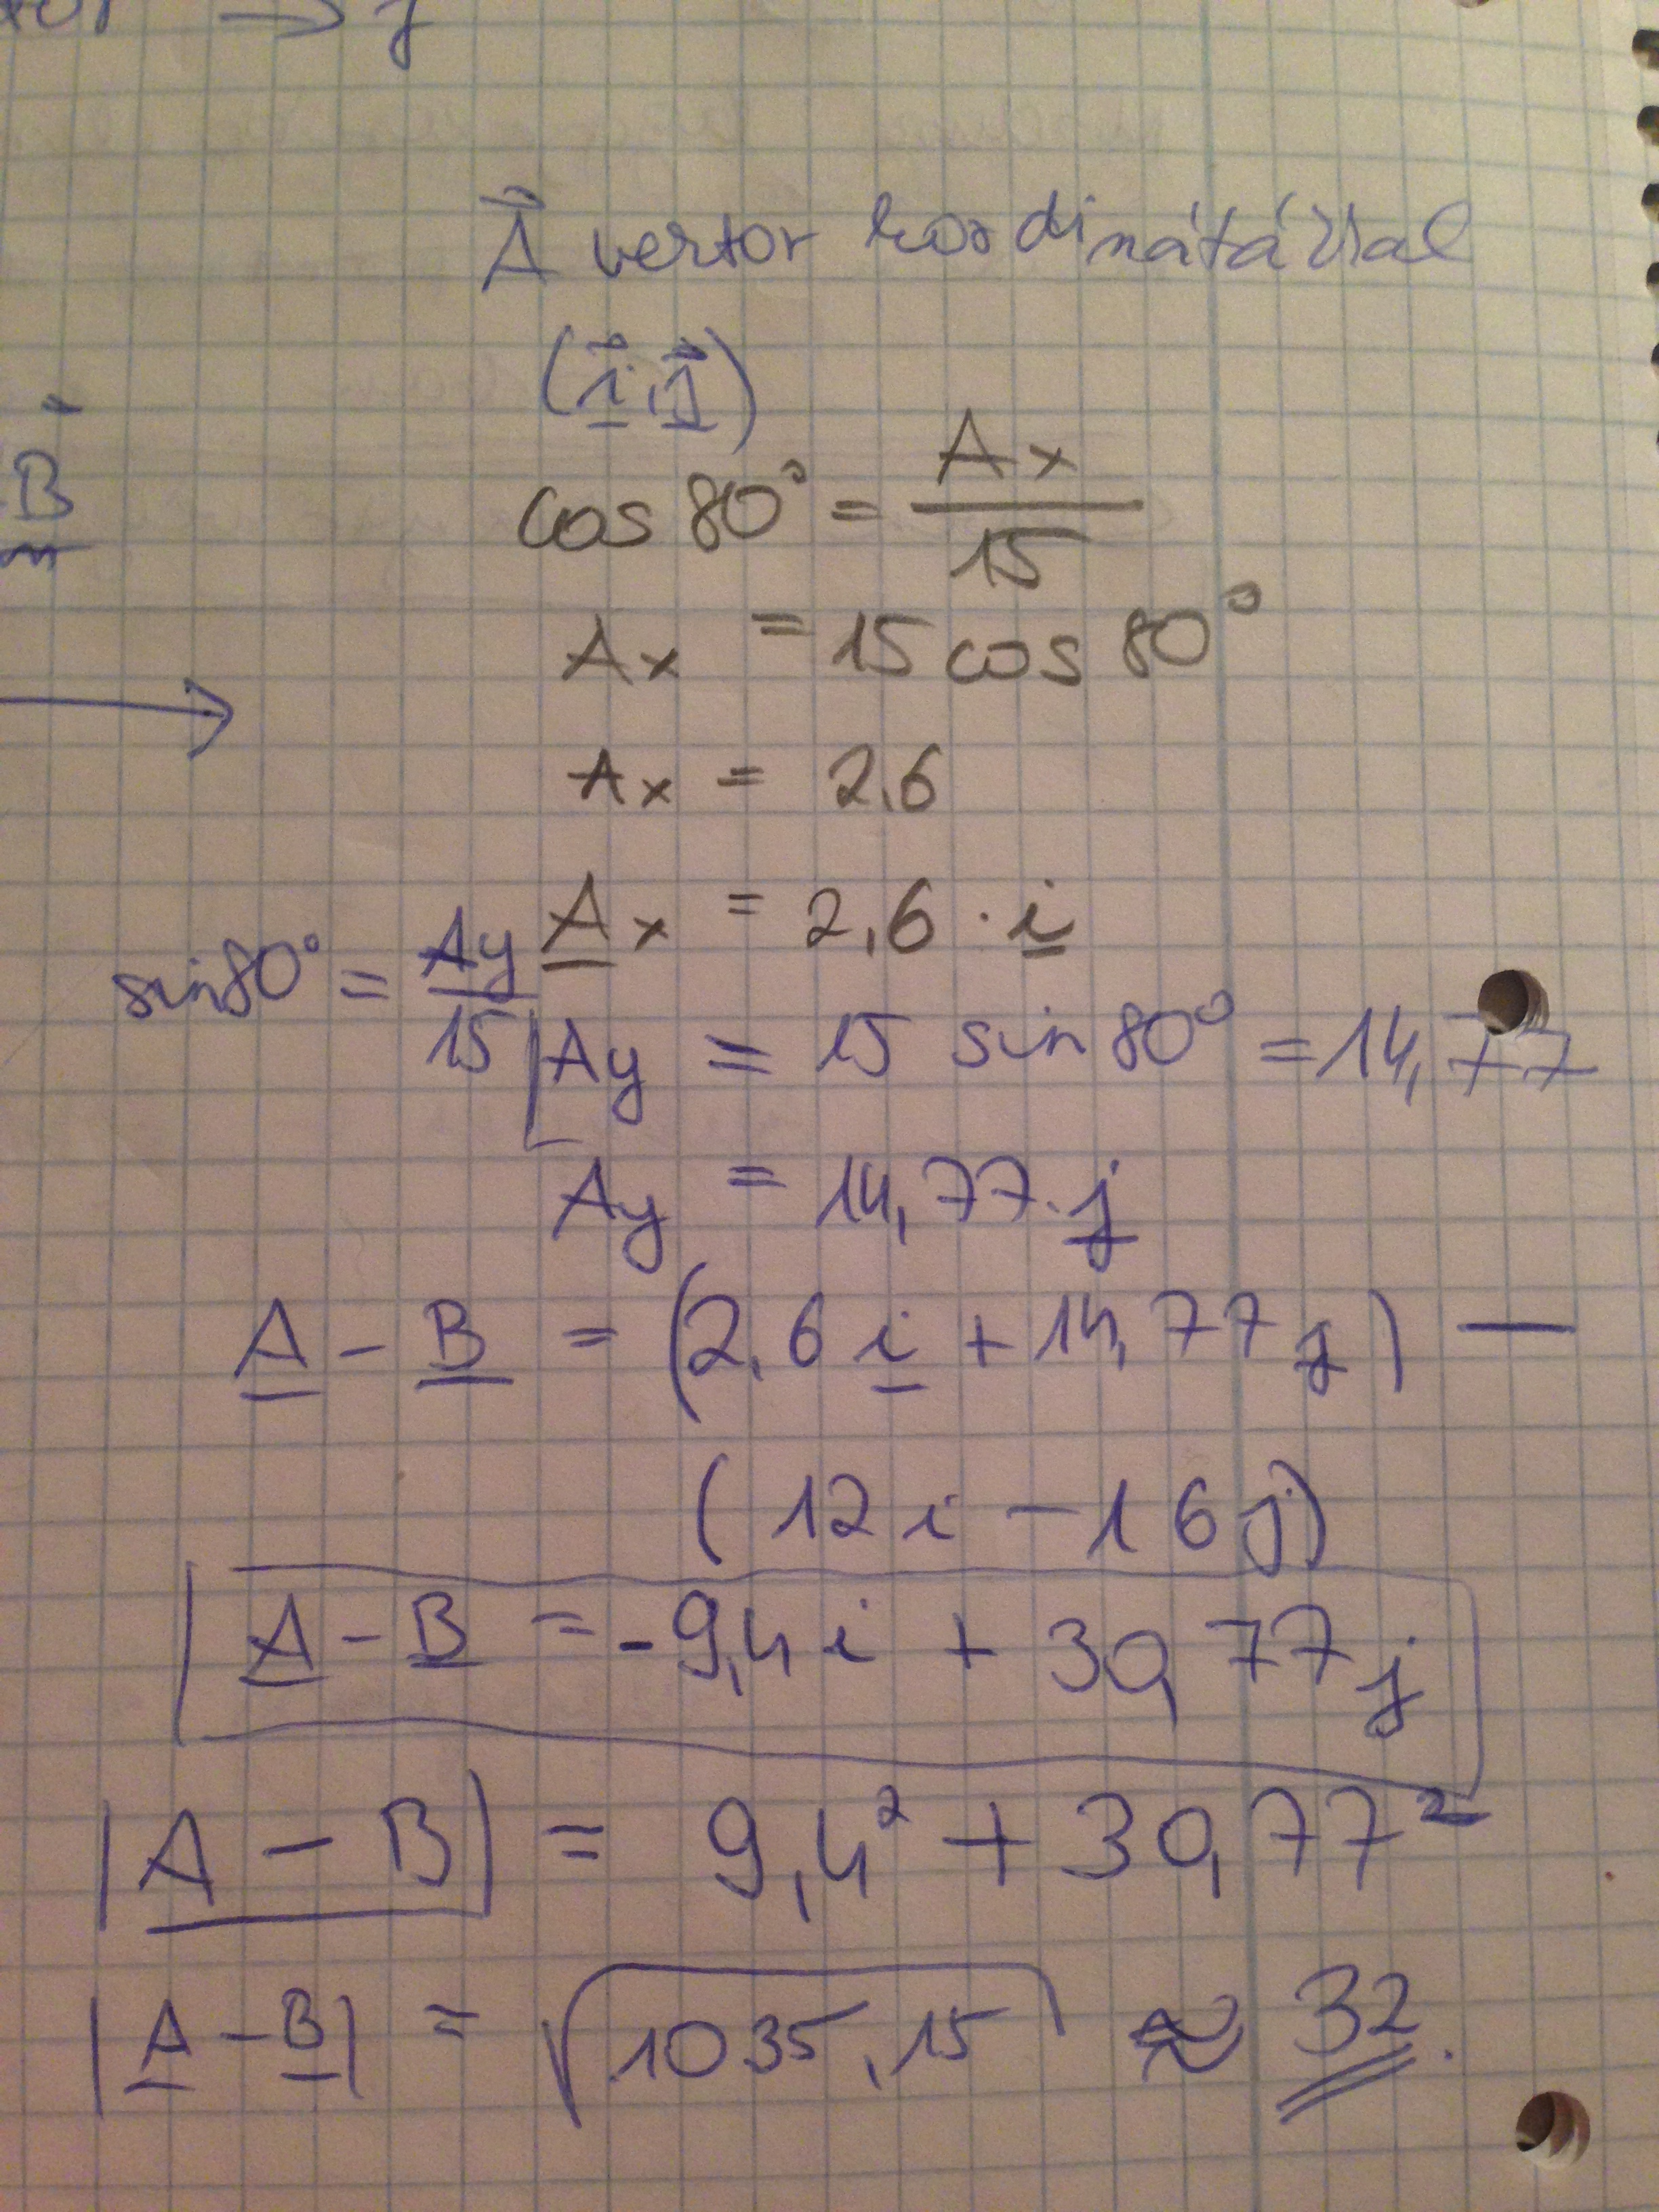 → j
A⃗ vektor koordinátákkal
(i⃗, j⃗)
B
cos 80° = Ax / 15
Ax = 15 cos 80°
Ax = 2,6
Ax = 2,6 · i
sin 80° = Ay / 15
Ay = 15 sin 80° = 14,77
Ay = 14,77 · j
A - B = (2,6 i + 14,77 j) —
(12 i - 16 j)
A - B = -9,4 i + 30,77 j
|A - B| = 9,4² + 30,77²
|A - B| = √1035,15 ≈ 32.